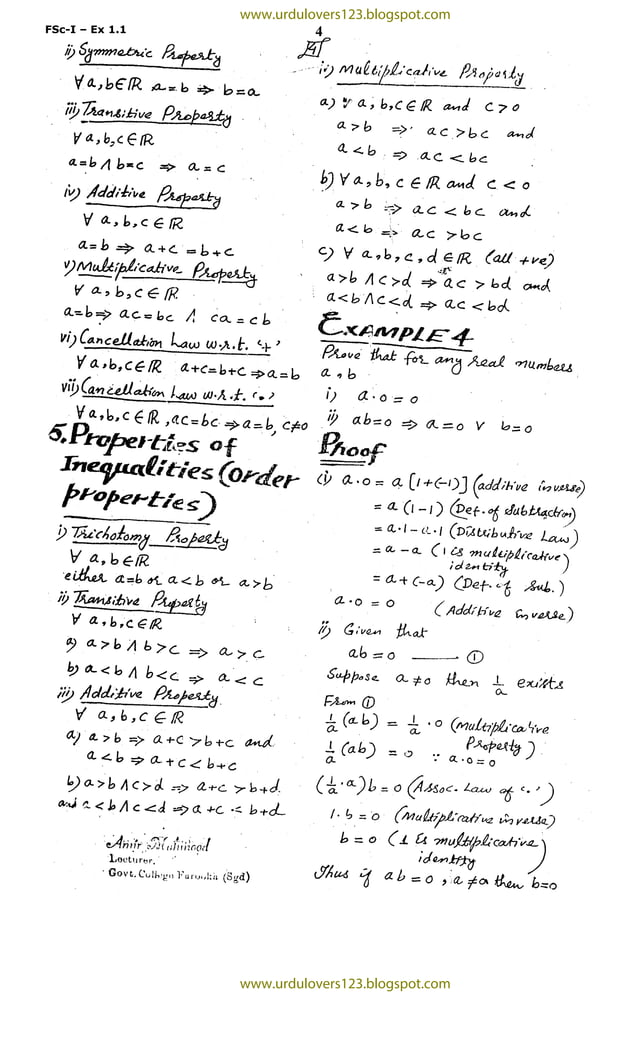 www.urdulovers123.blogspot.com
FSc-I – Ex 1.1
4
ii) Symmetric Property
∀ a,b∈ℝ a=b ⇒ b=a
iii) Transitive Property
∀ a,b,c ∈ℝ
a=b ∧ b=c ⇒ a=c
iv) Additive Property
∀ a,b,c ∈ ℝ
a=b ⇒ a+c = b+c
v) Multiplicative Property
∀ a,b,c ∈ ℝ
a=b ⇒ ac=bc ∧ ca=cb
vi) Cancellation Law w.r.t. '+'
∀ a,b,c∈ℝ a+c=b+c ⇒ a=b
vii) Cancellation Law w.r.t. '.'
∀ a,b,c∈ℝ, ac=bc ⇒ a=b, c≠0
5. Properties of
Inequalities (order
properties)
i) Trichotomy Property
∀ a,b∈ℝ
either a=b or a<b or a>b
ii) Transitive Property
∀ a,b,c∈ℝ
a) a>b ∧ b>c ⇒ a>c
b) a<b ∧ b<c ⇒ a<c
iii) Additive Property
∀ a,b,c ∈ ℝ
a) a>b ⇒ a+c>b+c and
a<b ⇒ a+c<b+c
b) a>b ∧ c>d ⇒ a+c > b+d
and a<b ∧ c<d ⇒ a+c < b+d
Lecturer,
Govt. College (Sgd)
4
iv) Multiplicative Property
a) ∀ a,b,c∈ℝ and c>0
a>b ⇒ ac>bc and
a<b ⇒ ac<bc
b) ∀ a,b,c ∈ ℝ and c<0
a>b ⇒ ac<bc and
a<b ⇒ ac>bc
c) ∀ a,b,c,d∈ℝ (all +ve)
a>b ∧ c>d ⇒ ac > bd and
a<b ∧ c<d ⇒ ac<bd
EXAMPLE 4
Prove that for any real numbers
a,b
i) a.0=0
ii) ab=0 ⇒ a=0 ∨ b=0
Proof
(i) a.0 = a [1+(-1)] (additive inverse)
= a (1-1) (Def. of subtraction)
= a.1-a.1 (Distributive Law)
= a-a (1 is multiplicative)
identity
= a+(-a) (Def. of Sub.)
a.0 = 0 (Additive inverse)
ii) Given that
ab=0 —— ①
Suppose a≠0 then 1/a exists
From ①
1/a (ab) = 1/a . 0 (Multiplicative
Property)
1/a (ab) = 0 ∵ a.0=0
(1/a . a)b = 0 (Assoc. Law of '.')
1.b = 0 (Multiplicative inverse)
b = 0 (1 is multiplicative)
identity
Thus if ab=0, a≠0 then b=0
www.urdulovers123.blogspot.com